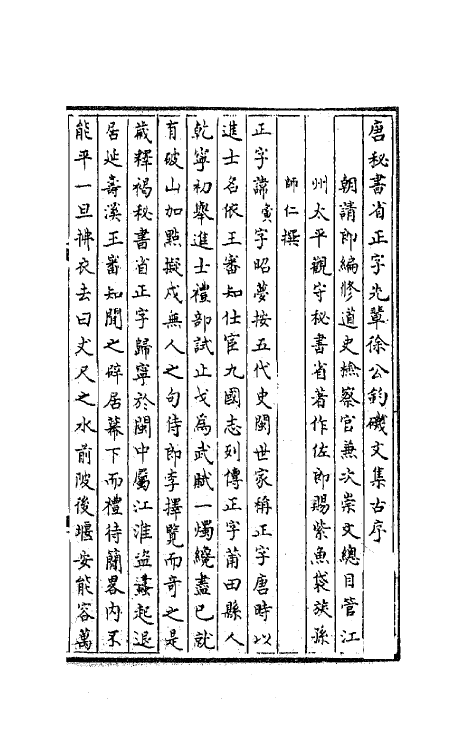 唐秘書省正字先輩徐公釣磯文集古序
朝請郎編修道史檢察官兼次崇文總目管江
州太平觀守秘書省著作佐郎賜紫魚袋族孫
師仁撰
正字諱寅字昭夢按五代史閩世家稱正字唐時以
進士名依王審知仕宦九國志列傳正字莆田縣人
乾寧初舉進士禮部試止戈為武賦一燭纔盡已就
有破山加點擬戍無人之句侍郎李擇覽而奇之是
歲釋褐秘書省正字歸寧於閩中屬江淮盜蜂起退
居延壽溪王審知聞之辟居幕下而禮待簡畧內不
能平一旦拂衣去曰丈尺之水前陂後堰安能容萬